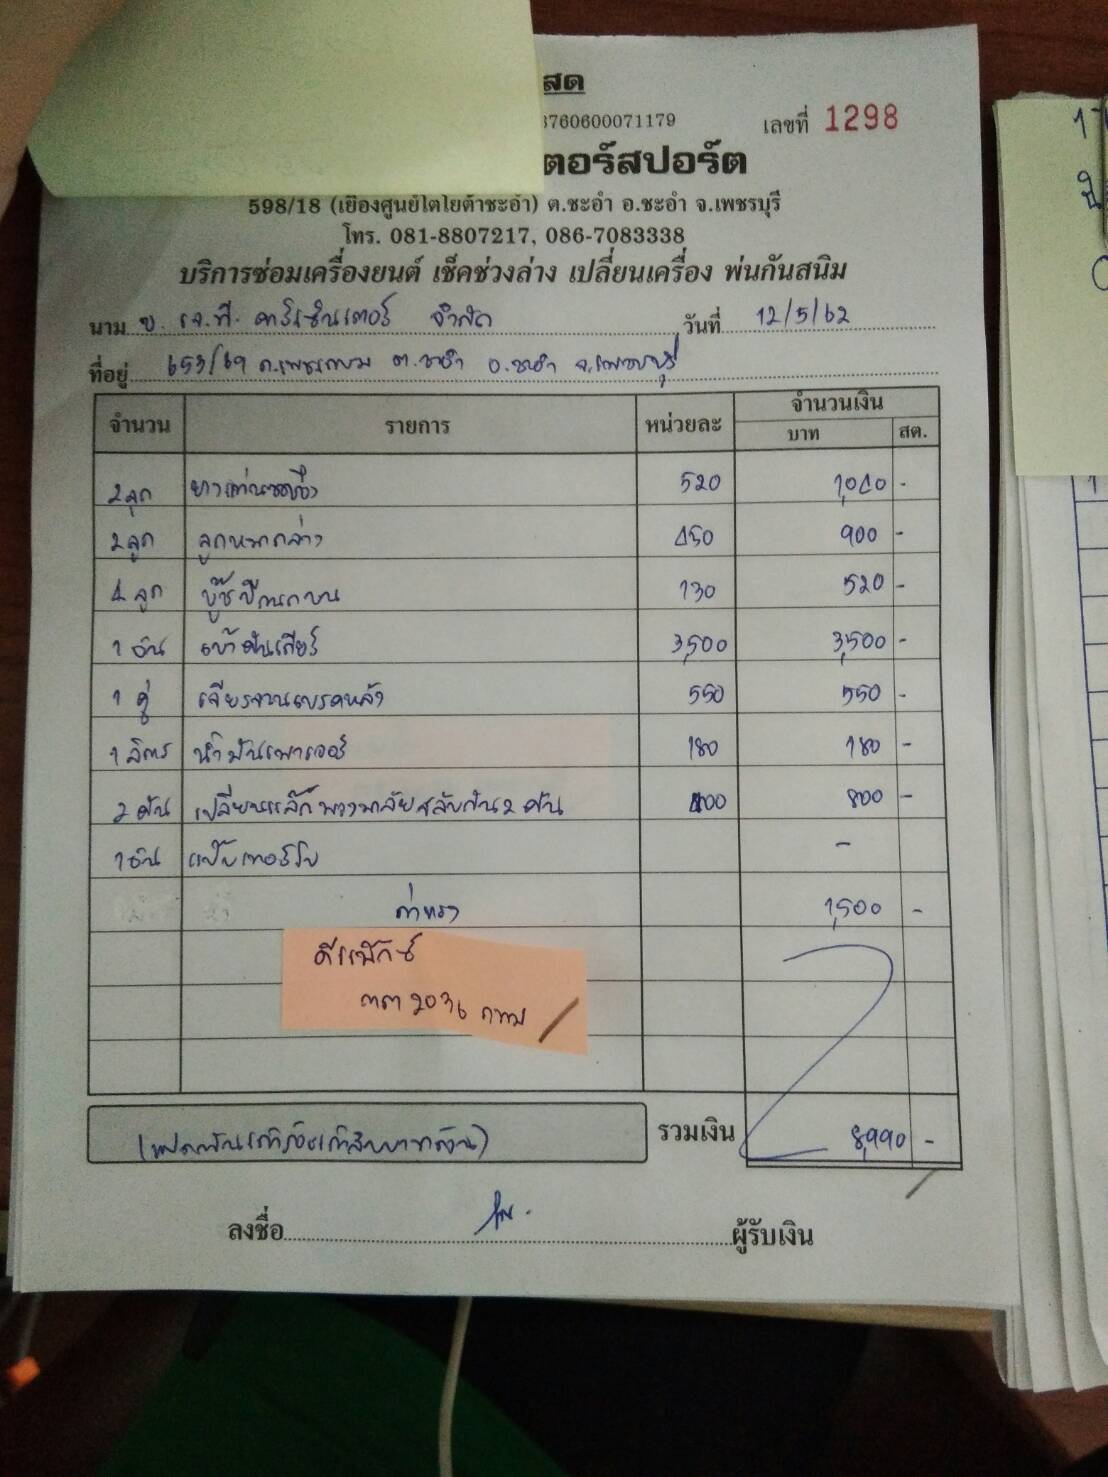 สด
3760600071179
เลขที่ 1298
ตอร์สปอร์ต
598/18 (เยื้องศูนย์โตโยต้าชะอำ) ต.ชะอำ อ.ชะอำ จ.เพชรบุรี
โทร. 081-8807217, 086-7083338
บริการซ่อมเครื่องยนต์ เช็คช่วงล่าง เปลี่ยนเครื่อง พ่นกันสนิม
นาม บ. เจ.ที. คาร์เซ็นเตอร์ จำกัด วันที่ 12/5/62
ที่อยู่ 653/69 ถ.เพชรเกษม ต.ชะอำ อ.ชะอำ จ.เพชรบุรี
จำนวน รายการ หน่วยละ จำนวนเงิน
บาท สต.
2 ลูก ยางแท่น 520 1,040 -
2 ลูก ลูกหมากล่าง 450 900 -
4 ลูก บู๊ชปีกนกบน 130 520 -
1 อัน เบ้าคันเกียร์ 3,500 3,500 -
1 คู่ เจียรจานเบรคหลัง 550 550 -
1 ลิตร น้ำมันเพาเวอร์ 180 180 -
2 คัน เปลี่ยนแร็ค พวงมาลัยสลับกัน 2 คัน 400 800 -
1 อัน แป๊บเทอร์โบ -
ค่าแรง 1,500 -
ดีแม๊กซ์
2036 กทม
(แปดพันเก้าร้อยเก้าสิบบาทถ้วน) รวมเงิน 8,990 -
ลงชื่อ ผู้รับเงิน